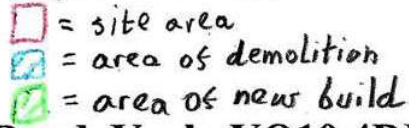 = site area
= area of demolition
= area of new build